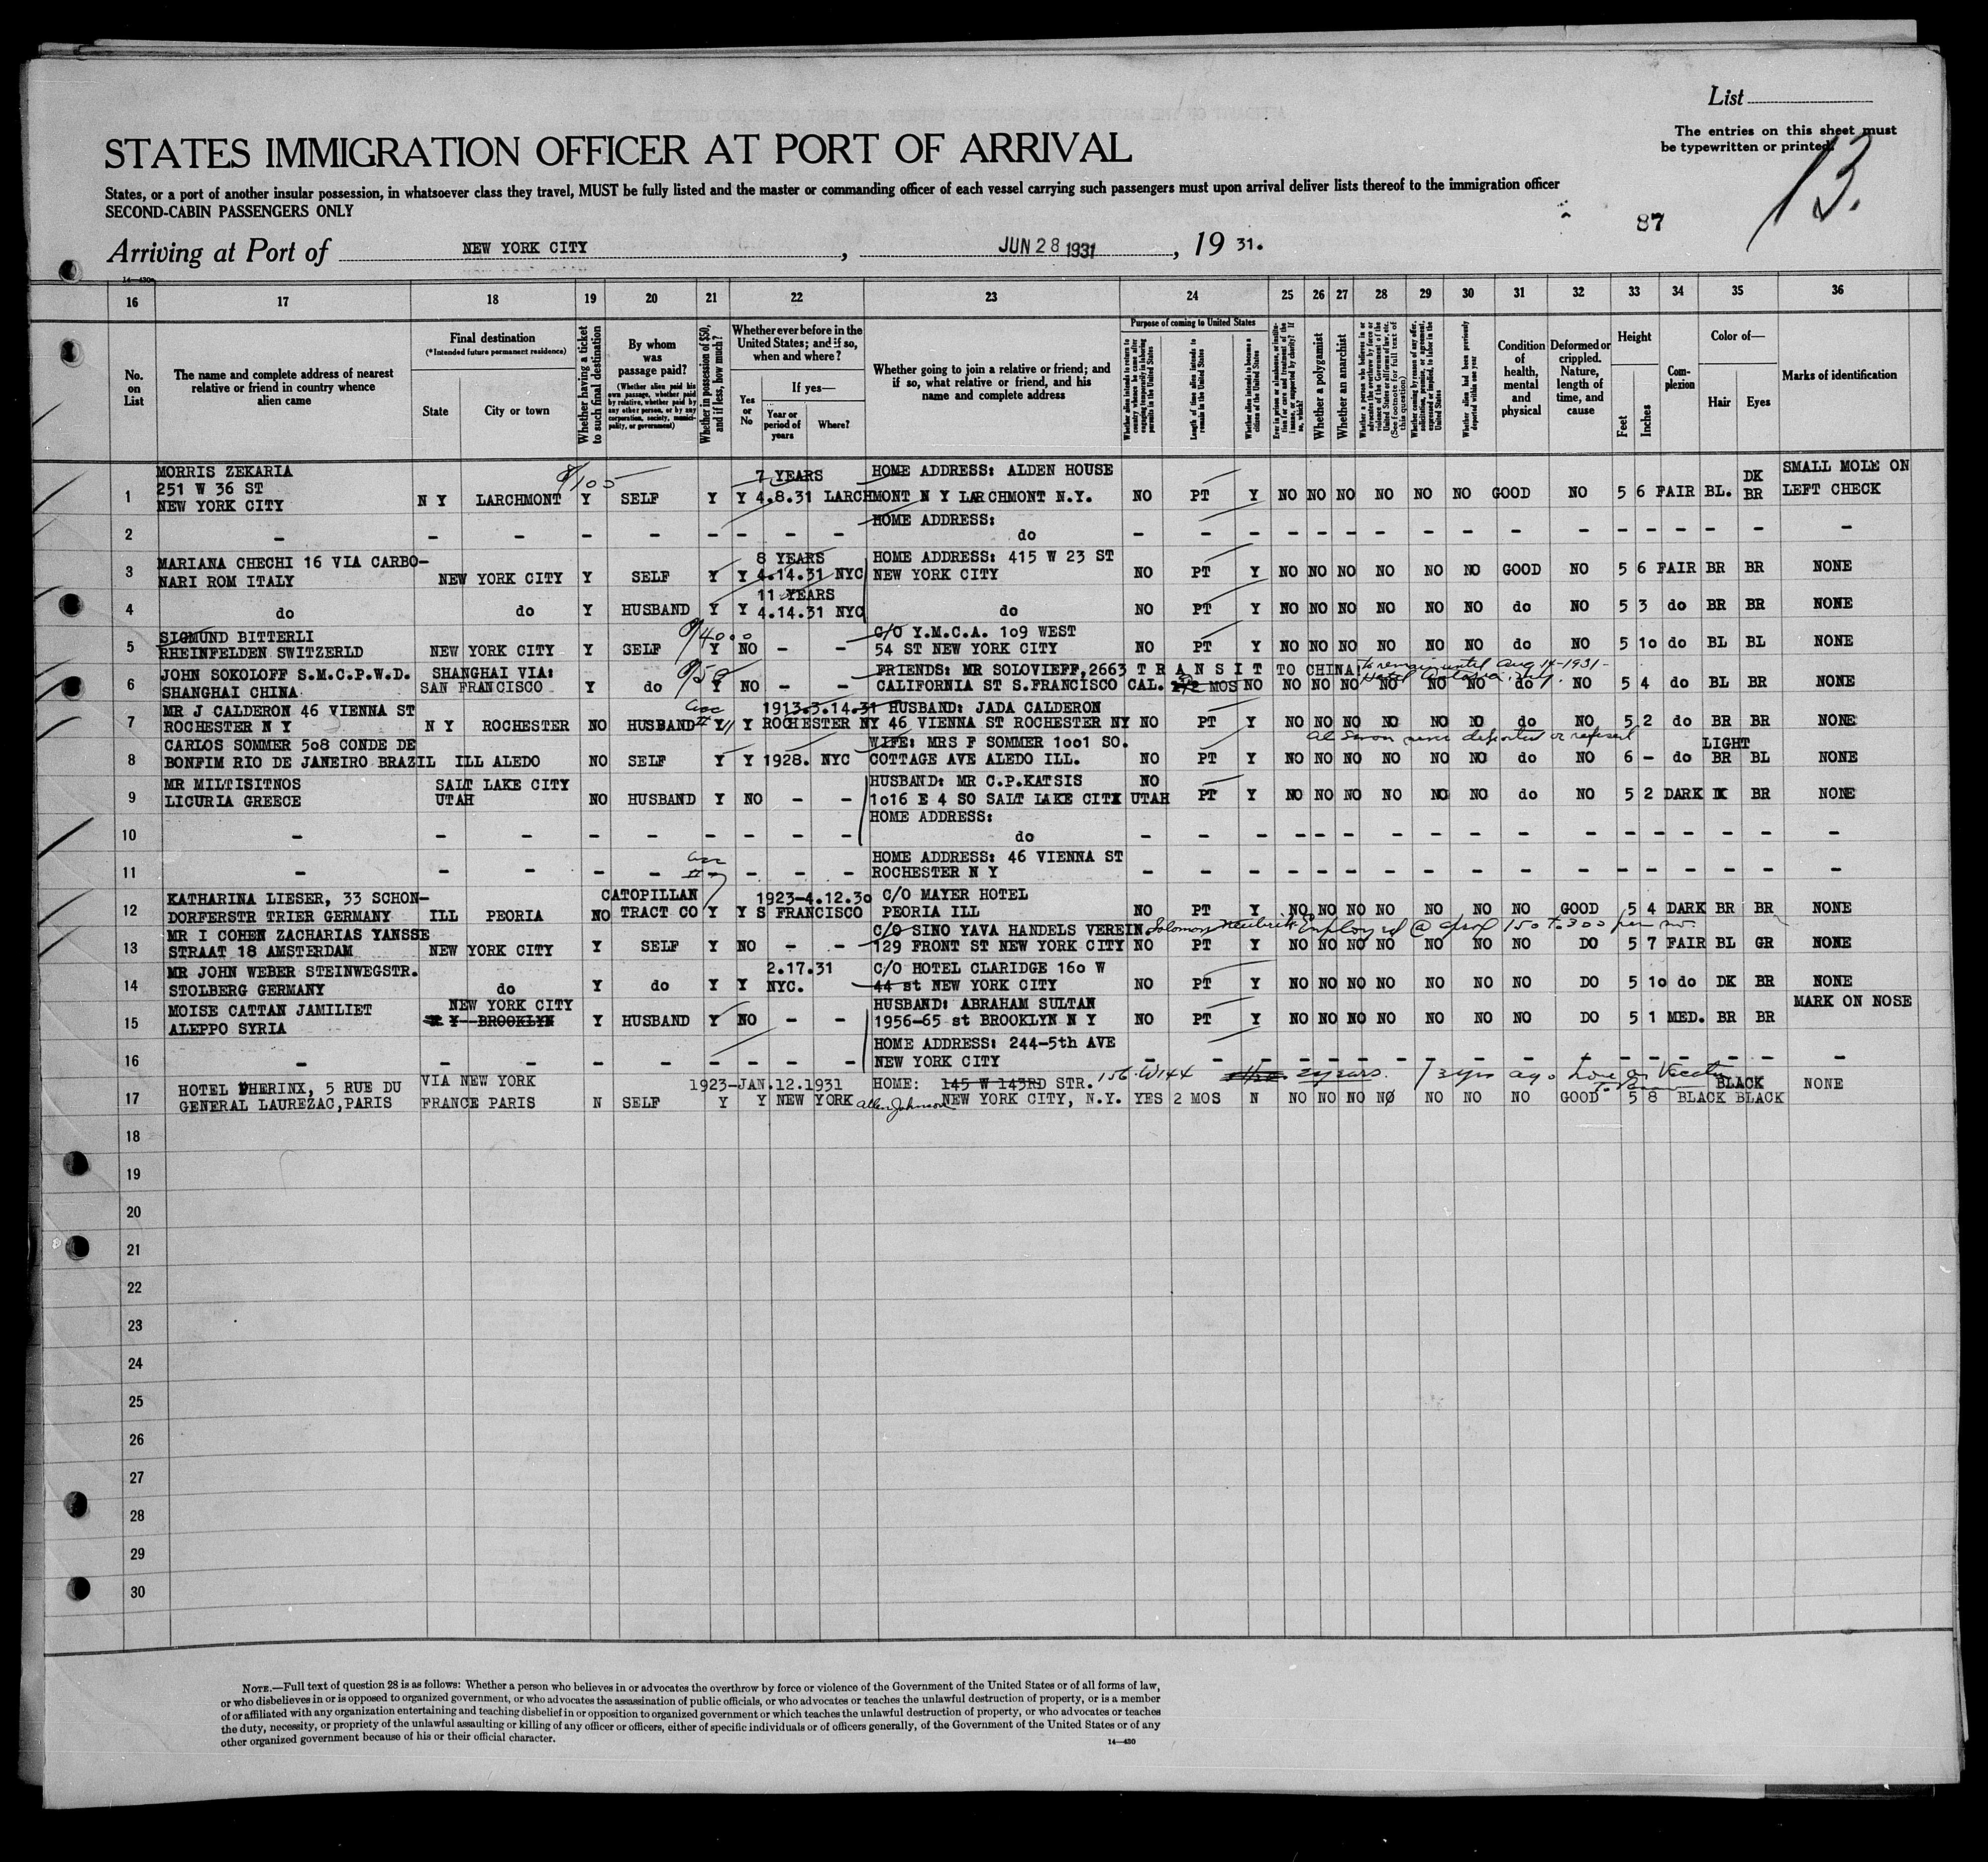 List
The entries on this sheet must
be typewritten or printed.
13.
STATES IMMIGRATION OFFICER AT PORT OF ARRIVAL
States, or a port of another insular possession, in whatsoever class they travel, MUST be fully listed and the master or commanding officer of each vessel carrying such passengers must upon arrival deliver lists thereof to the immigration officer
SECOND-CABIN PASSENGERS ONLY
87
Arriving at Port of NEW YORK CITY, JUN 28 1931, 19 31.
14-430
16 17 18 19 20 21 22 23 24 25 26 27 28 29 30 31 32 33 34 35 36
No. on List
The name and complete address of nearest relative or friend in country whence alien came
Final destination
(*Intended future permanent residence)
State
City or town
Whether having a ticket to such final destination
By whom was passage paid?
(Whether alien paid his own passage, whether paid by relative, whether paid by any other person, or by any corporation, society, municipality, or government)
Whether in possession of $50, and if less, how much?
Whether ever before in the United States; and if so, when and where?
Yes or No
If yes—
Year or period of years
Where?
Whether going to join a relative or friend; and if so, what relative or friend, and his name and complete address
Purpose of coming to United States
Whether alien intends to return to country whence he came after engaging temporarily in laboring pursuits in the United States
Length of time alien intends to remain in the United States
Whether alien intends to become a citizen of the United States
Ever in prison or almshouse, or institution for care and treatment of the insane, or supported by charity? If so, which?
Whether a polygamist
Whether an anarchist
Whether a person who believes in or advocates the overthrow by force or violence of the Government of the United States or all forms of law, etc. (See footnote for full text of this question)
Whether coming by reason of any offer, solicitation, promise, or agreement, expressed or implied, to labor in the United States
Whether alien had been previously deported within one year
Condition of health, mental and physical
Deformed or crippled. Nature, length of time, and cause
Height
Feet
Inches
Complexion
Color of—
Hair
Eyes
Marks of identification
MORRIS ZEKARIA 7 YEARS HOME ADDRESS: ALDEN HOUSE DK SMALL MOLE ON
1 251 W 36 ST N Y LARCHMONT Y SELF Y Y 4.8.31 LARCHMONT N Y LARCHMONT N.Y. NO PT Y NO NO NO NO NO NO GOOD NO 5 6 FAIR BL. BR LEFT CHECK
NEW YORK CITY
HOME ADDRESS:
2 – – – – – – – – – do – – – – – – – – – – – – – – – – –
MARIANA CHECHI 16 VIA CARBO- 8 YEARS HOME ADDRESS: 415 W 23 ST
3 NARI ROM ITALY NEW YORK CITY Y SELF Y Y 4.14.31 NYC NEW YORK CITY NO PT Y NO NO NO NO NO NO GOOD NO 5 6 FAIR BR BR NONE
11 YEARS
4 do do Y HUSBAND Y Y 4.14.31 NYC do NO PT Y NO NO NO NO NO NO do NO 5 3 do BR BR NONE
SIGMUND BITTERLI C/O Y.M.C.A. 109 WEST
5 RHEINFELDEN SWITZERLD NEW YORK CITY Y SELF Y NO – – 54 ST NEW YORK CITY NO PT Y NO NO NO NO NO NO do NO 5 10 do BL BL NONE
JOHN SOKOLOFF S.M.C.P.W.D. SHANGHAI VIA: FRIENDS: MR SOLOVIEFF,2663 T R A N S I T TO CHINA to remain until Aug 14-1931-
6 SHANGHAI CHINA SAN FRANCISCO Y do Y NO – – CALIFORNIA ST S.FRANCISCO CAL. MOS NO NO NO NO NO NO NO do NO 5 4 do BL BR NONE
MR J CALDERON 46 VIENNA ST 1913-3.14.31 HUSBAND: JADA CALDERON
7 ROCHESTER N Y N Y ROCHESTER NO HUSBAND Y Y ROCHESTER NY 46 VIENNA ST ROCHESTER NY NO PT Y NO NO NO NO NO NO do NO 5 2 do BR BR NONE
CARLOS SOMMER 508 CONDE DE WIFE: MRS F SOMMER 1001 SO. never deported or refused LIGHT
8 BONFIM RIO DE JANEIRO BRAZIL ILL ALEDO NO SELF Y Y 1928. NYC COTTAGE AVE ALEDO ILL. NO PT Y NO NO NO NO NO NO do NO 6 – do BR BL NONE
MR MILTISITNOS SALT LAKE CITY HUSBAND: MR C.P.KATSIS NO
9 LICURIA GREECE UTAH NO HUSBAND Y NO – – 1016 E 4 SO SALT LAKE CITY UTAH PT Y NO NO NO NO NO NO do NO 5 2 DARK DK BR NONE
HOME ADDRESS:
10 – – – – – – – – – do – – – – – – – – – – – – – – – – –
HOME ADDRESS: 46 VIENNA ST
11 – – – – – – – – – ROCHESTER N Y – – – – – – – – – – – – – – – – –
KATHARINA LIESER, 33 SCHON- CATOPILLAN 1923-4.12.30 C/O MAYER HOTEL
12 DORFERSTR TRIER GERMANY ILL PEORIA NO TRACT CO Y Y S FRANCISCO PEORIA ILL NO PT Y NO NO NO NO NO NO NO GOOD 5 4 DARK BR BR NONE
MR I COHEN ZACHARIAS YANSSE C/O SINO YAVA HANDELS VEREIN Solomon Employed @ 150 to 300 per mo.
13 STRAAT 18 AMSTERDAM NEW YORK CITY Y SELF Y NO – – 129 FRONT ST NEW YORK CITY NO PT Y NO NO NO NO NO NO NO DO 5 7 FAIR BL GR NONE
MR JOHN WEBER STEINWEGSTR. 2.17.31 C/O HOTEL CLARIDGE 160 W
14 STOLBERG GERMANY do Y do Y Y NYC. 44 st NEW YORK CITY NO PT Y NO NO NO NO NO NO NO DO 5 10 do DK BR NONE
MOISE CATTAN JAMILIET NEW YORK CITY HUSBAND: ABRAHAM SULTAN MARK ON NOSE
15 ALEPPO SYRIA N Y BROOKLYN Y HUSBAND Y NO – – 1956-65 st BROOKLYN N Y NO PT Y NO NO NO NO NO NO NO DO 5 1 MED. BR BR
HOME ADDRESS: 244-5th AVE
16 – – – – – – – – – NEW YORK CITY – – – – – – – – – – – – – – – – –
HOTEL PHERINX, 5 RUE DU VIA NEW YORK 1923-JAN.12.1931 HOME: 145 W 143RD STR. 156-W144 2 years. 3 yrs ago BLACK NONE
17 GENERAL LAUREZAC,PARIS FRANCE PARIS N SELF Y Y NEW YORK Allen Johnson NEW YORK CITY, N.Y. YES 2 MOS N NO NO NO NO NO NO NO GOOD 5 8 BLACK BLACK
18
19
20
21
22
23
24
25
26
27
28
29
30
NOTE.—Full text of question 28 is as follows: Whether a person who believes in or advocates the overthrow by force or violence of the Government of the United States or of all forms of law,
or who disbelieves in or is opposed to organized government, or who advocates the assassination of public officials, or who advocates or teaches the unlawful destruction of property, or is a member
of or affiliated with any organization entertaining and teaching disbelief in or opposition to organized government or which teaches the unlawful destruction of property, or who advocates or teaches
the duty, necessity, or propriety of the unlawful assaulting or killing of any officer or officers, either of specific individuals or of officers generally, of the Government of the United States or of any
other organized government because of his or their official character.
14-430